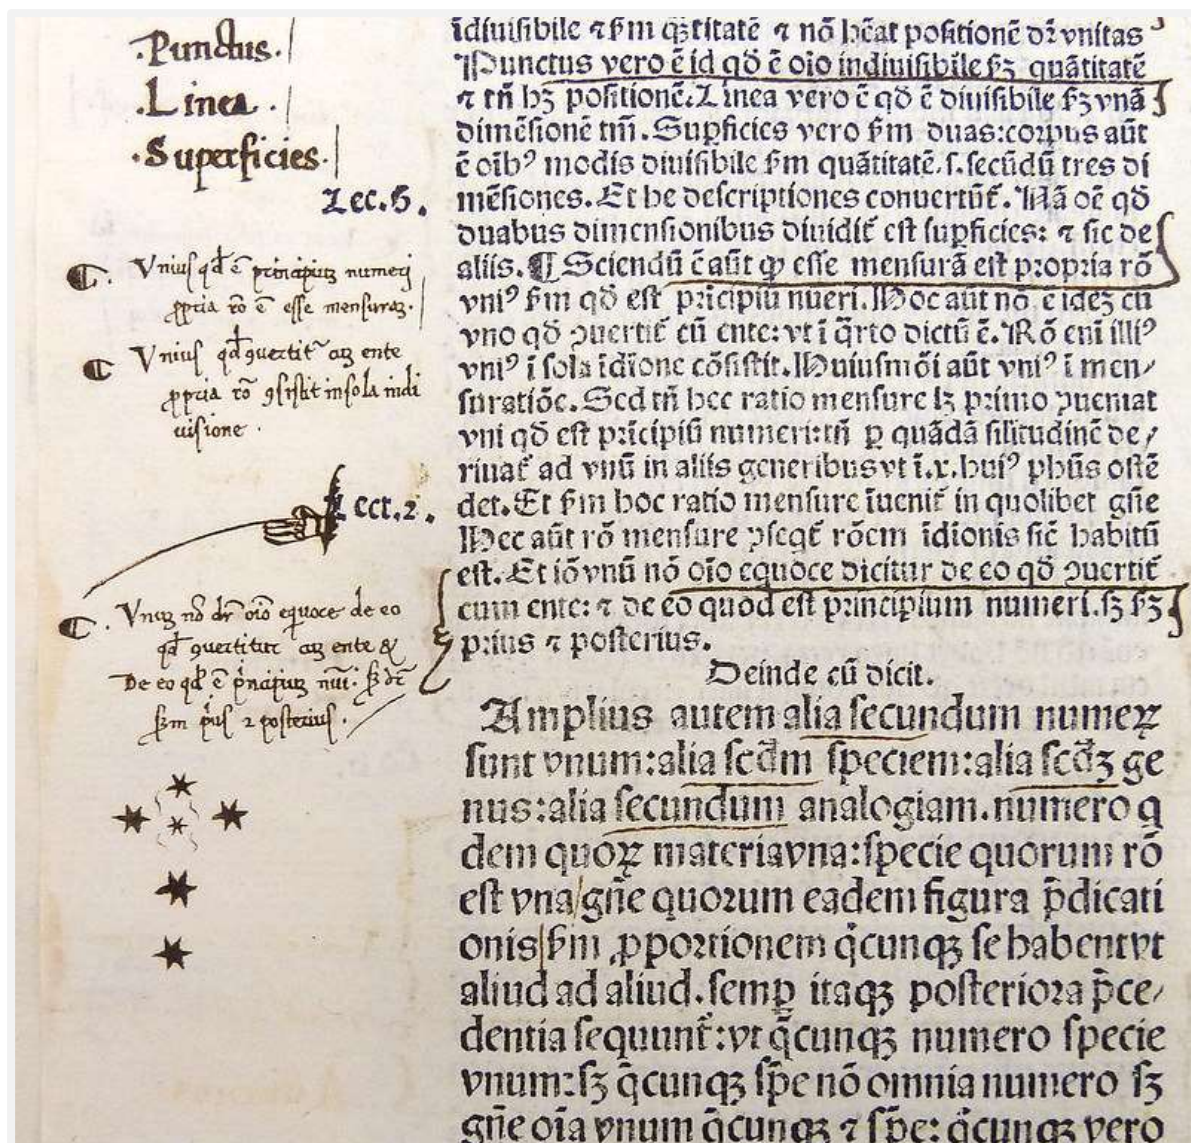 Punctus.
.Linea.
.Superficies.
Lec.5.
Vnius qđ ē principiuz numeri
ꝓpria rō ē esse mensuraz.
Vnius qđ ꝯuertitr cuz ente
ꝓpria rō ꝯsistit in sola indi
uisione.
Lect.2.
Vnuz nō dr̄ oīo equoce de eo
qđ ꝯuertitur cuz ente &
De eo qđ ē p̄ncipiuz nūi. sꝫ dr̄
sꝫm p̄us ⁊ posterius.
īdiuisibile ⁊ ẜm quātitatē ⁊ nō hēat positionē dr̄ vnitas
Punctus vero ē id qđ ē oīo indiuisibile ẜꝫ quātitatē
⁊ tn̄ hꝫ positionē. Linea vero ē qđ ē diuisibile ẜꝫ vnā
dimēsionē tm̄. Suꝑficies vero ẜm duas: corpus aūt
ē oībꝰ modis diuisibile ẜm quātitatē. s. secūdū tres di
mēsiones. Et he descriptiones conuertūt̄. Nā oē qđ
duabus dimensionibus diuidit̄ est suꝑficies: ⁊ sic de
aliis. ¶ Sciendū ē aūt ꝙ esse mensurā est propria rō
vniꝰ ẜm qđ est prīcipiū nūeri. Hoc aūt nō ē ideꝫ cū
vno qđ ꝯuertit̄ cū ente: vt ī q̄rto dictū ē. Rō eni illiꝰ
vniꝰ ī sola īdīione cōsistit. Huiusmōi aūt vniꝰ ī men-
suratiōe. Sed tn̄ hec ratio mensure lꝫ primo ꝯueniat
vni qđ est prīcipiū numeri: tn̄ ꝑ quādā silitudinē de-
riuat̄ ad vnū in aliis generibus vt ī.x. huiꝰ ph̄us ostē
det. Et ẜm hoc ratio mensure īuenit̄ in quolibet gn̄e
Hec aūt rō mensure ꝯseqt̄ rōem īdionis sic̄ habitū
est. Et iō vnū nō oīo equoce dicitur de eo qđ ꝯuertit̄
cum ente: ⁊ de eo quod est principium numeri. sꝫ ẜꝫ
prius ⁊ posterius.
Deinde cū dicit.
Amplius autem alia secundum numeꝝ
sunt vnum: alia scđm speciem: alia scđꝫ ge
nus: alia secundum analogiam. numero q
dem quoꝝ materia vna: specie quorum rō
est vna/ gn̄e quorum eadem figura p̄dicati
onis/ ẜm ꝓportionem q̄cunqꝫ se habent vt
aliud ad aliud. semꝑ itaqꝫ posteriora p̄ce-
dentia sequunt̄: vt q̄cunqꝫ numero specie
vnum: sꝫ q̄cunqꝫ sp̄e nō omnia numero sꝫ
gn̄e oīa vnum q̄cunqꝫ ⁊ sp̄e: q̄cunqꝫ vero